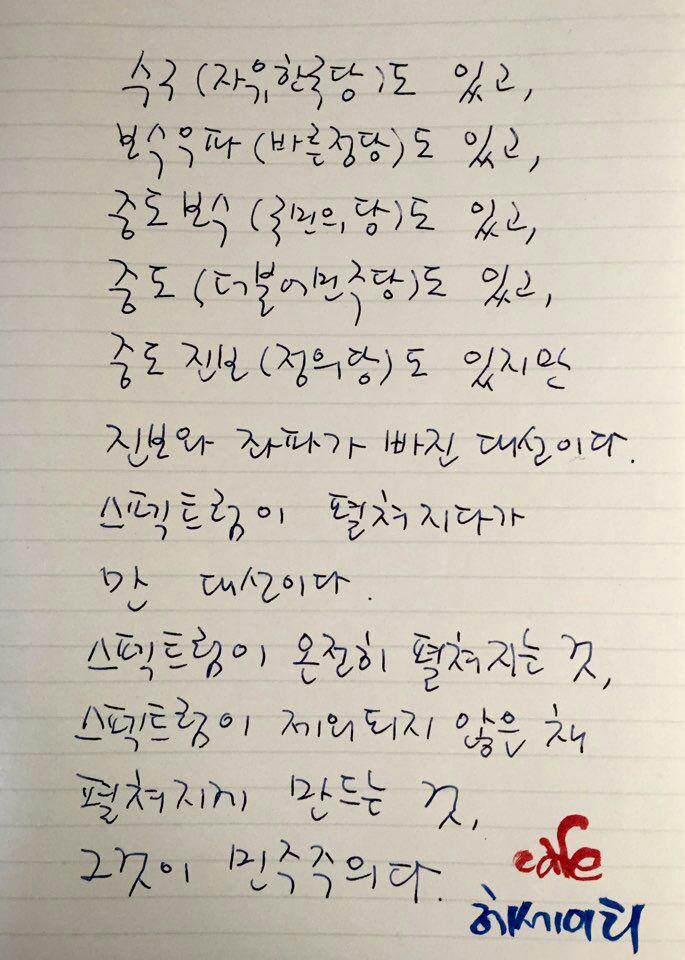 수구 (자유한국당)도 있고,
보수우파 (바른정당)도 있고,
중도보수 (국민의당)도 있고,
중도 (더불어민주당)도 있고,
중도 진보 (정의당)도 있지만
진보와 좌파가 빠진 대선이다.
스펙트럼이 펼쳐지다가
만 대선이다.
스펙트럼이 온전히 펼쳐지는 것,
스펙트럼이 제외되지 않은 채
펼쳐지게 만드는 것,
그것이 민주주의다.
cafe